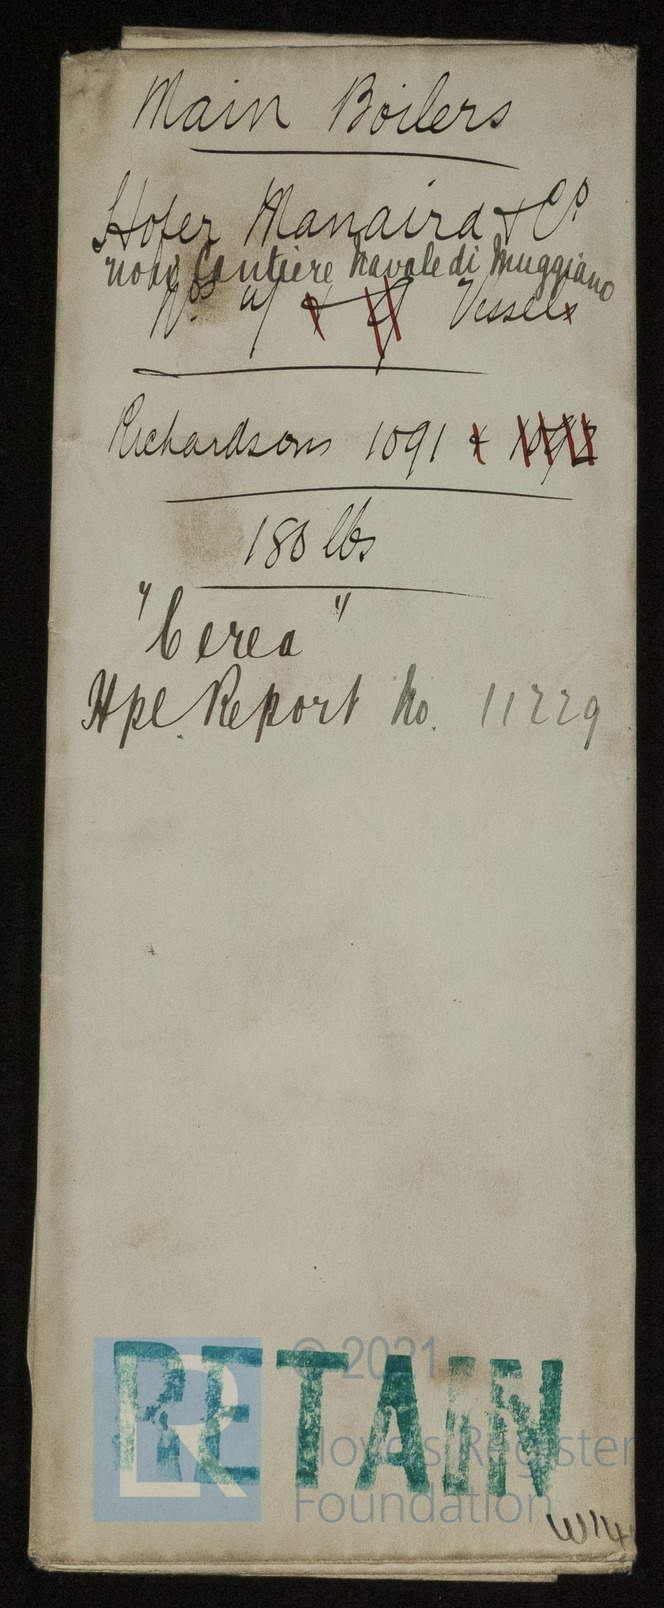 Main Boilers
Hofer Manaira & Co
now Cantiere Navale di Muggiano
Nos 4/ & 9 Vessels
Richardsons 1091 & 1092
180 lbs
"Cerea"
Hpl. Report No. 11229
RETAIN
© 2021
Lloyd's Register
Foundation
LR
W14